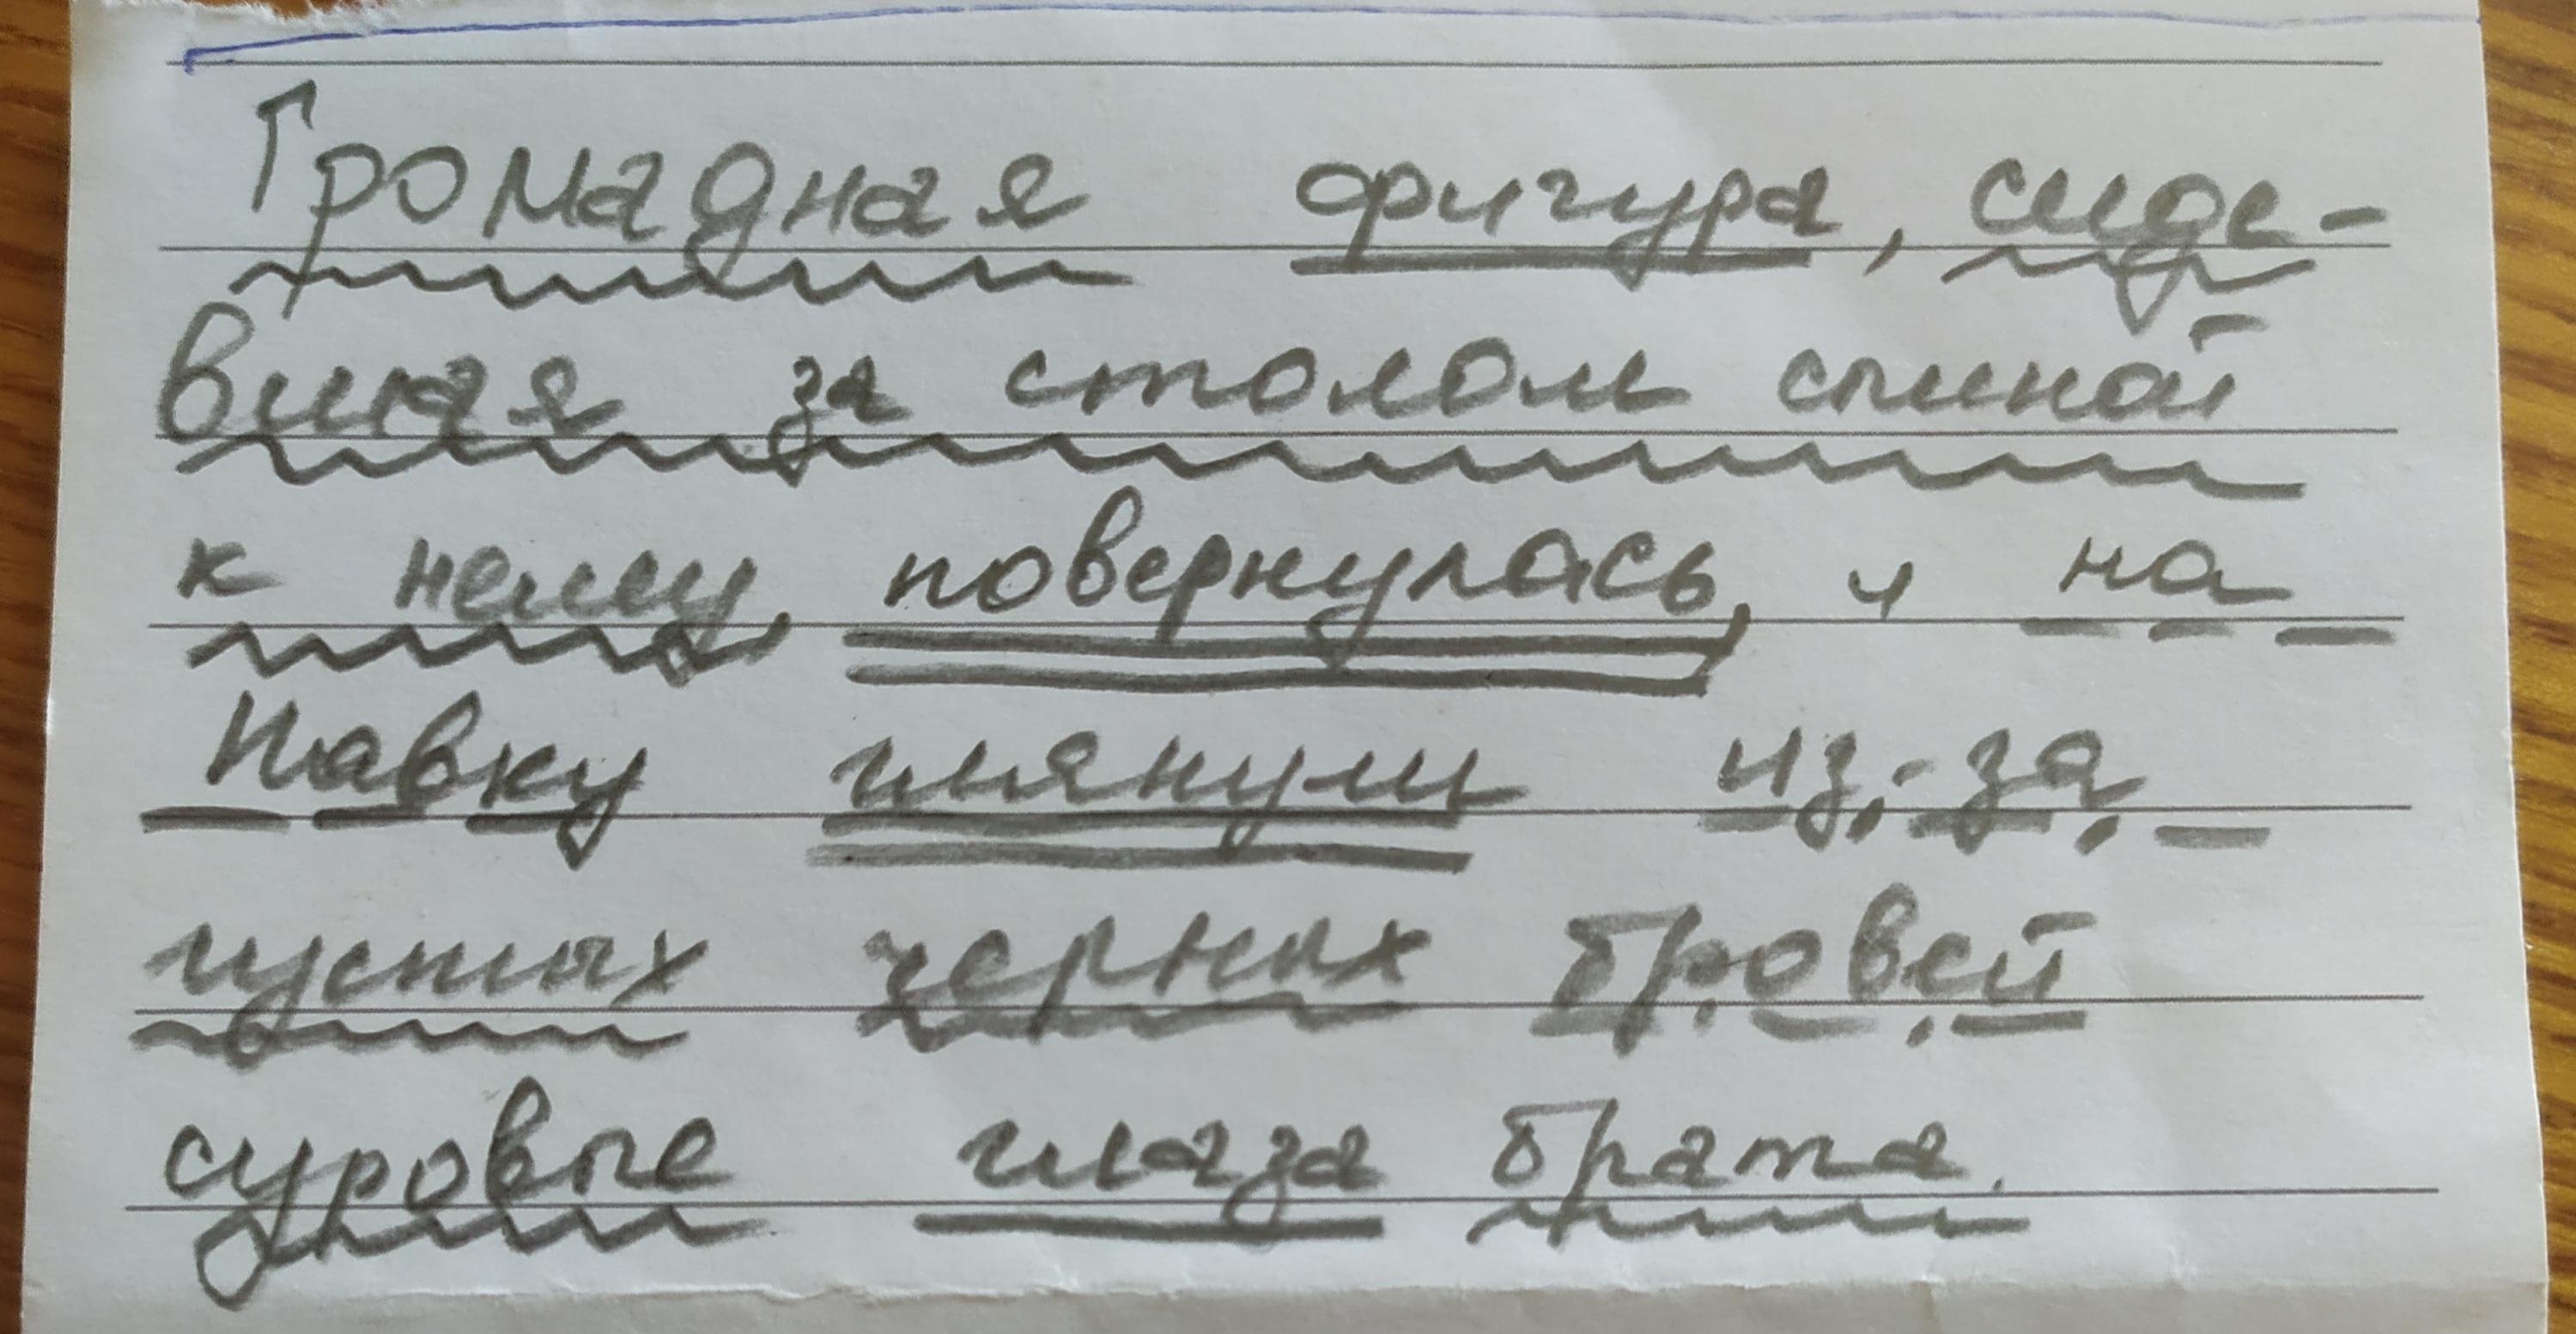 Громадная фигура, сиде-
вшая за столом спиной
к нему, повернулась, и на
Павку глянули из-за
густых черных бровей
суровые глаза брата.